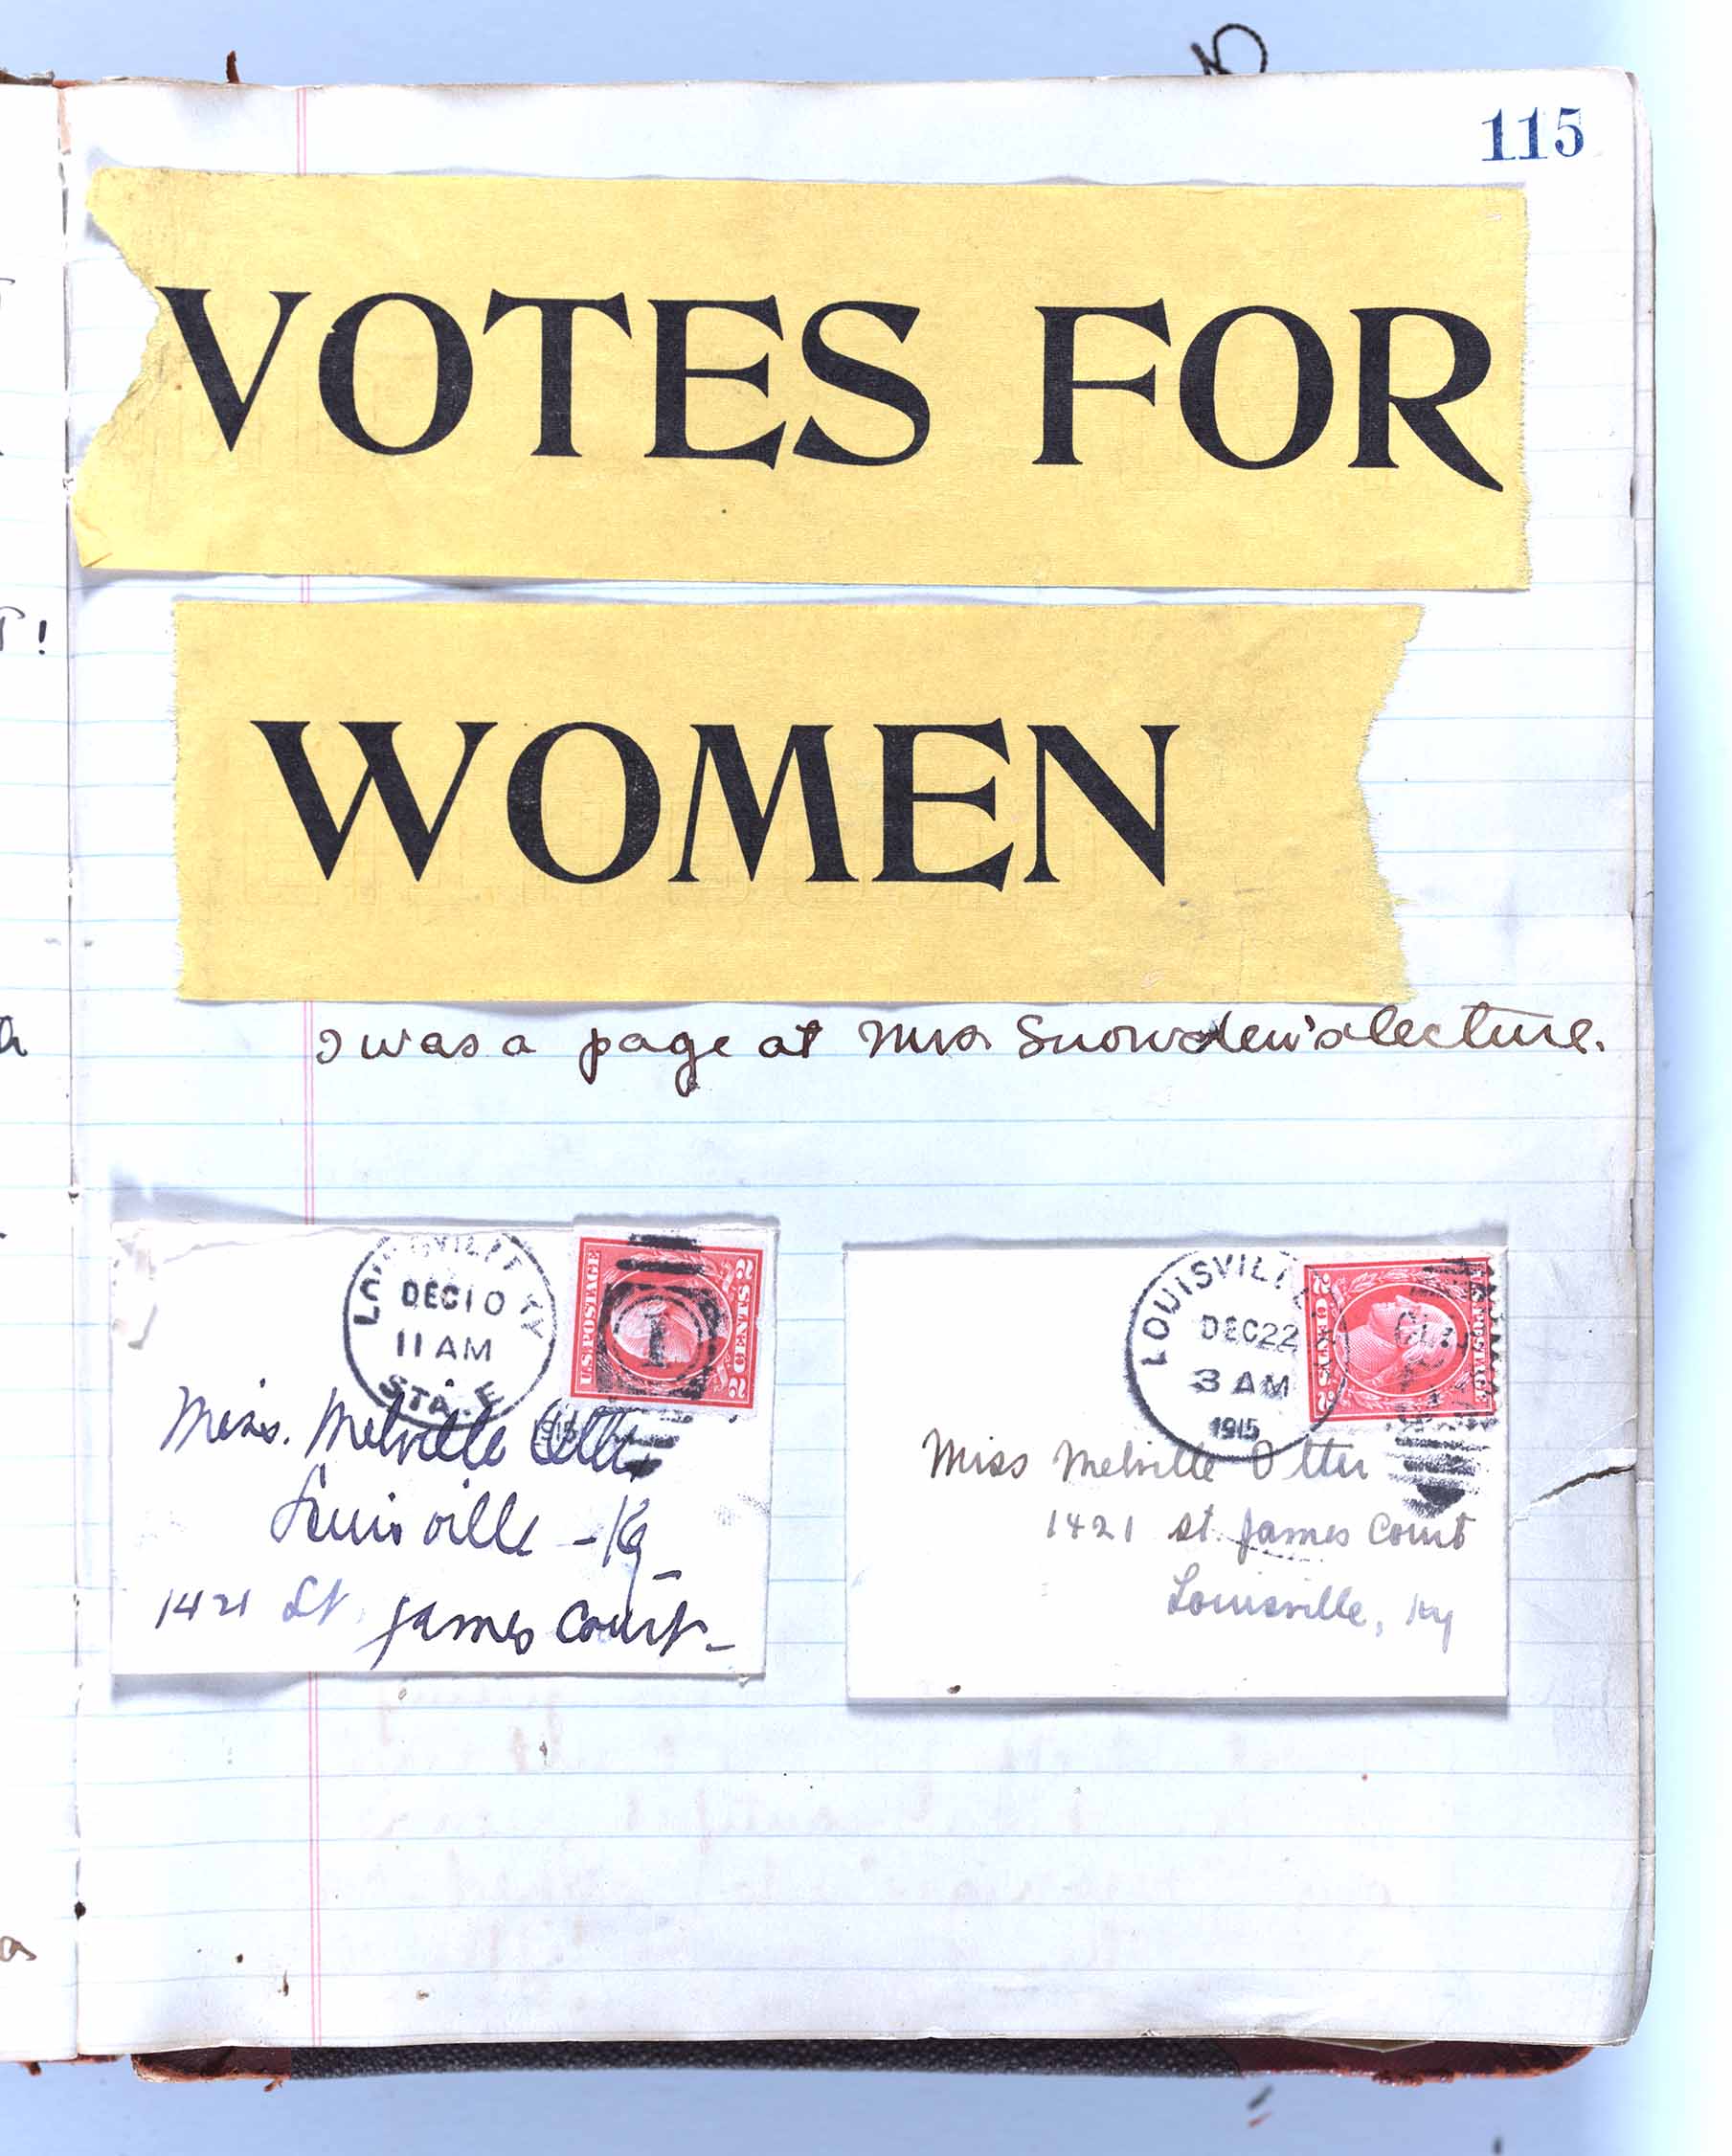 115
VOTES FOR
WOMEN
I was a page at Mrs. Snowden's lecture.
LOUISVILLE KY
DEC 10
11 AM
STA. E
1915
U.S. POSTAGE
2 CENTS 2
1
Miss. Melville Otter
Louisville - Ky
1421 St. James Court
LOUISVILLE
DEC 22
3 AM
1915
2 CENTS 2
Miss Melville Otter
1421 St. James Court
Louisville, Ky